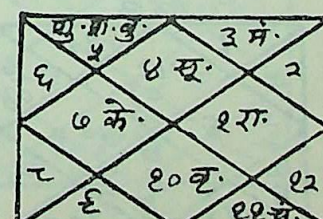 शु. श. बु.
५
३ मं.
६
४ सू.
२
७ के.
१ रा.
८
१० बृ.
१२
९
११ चं.